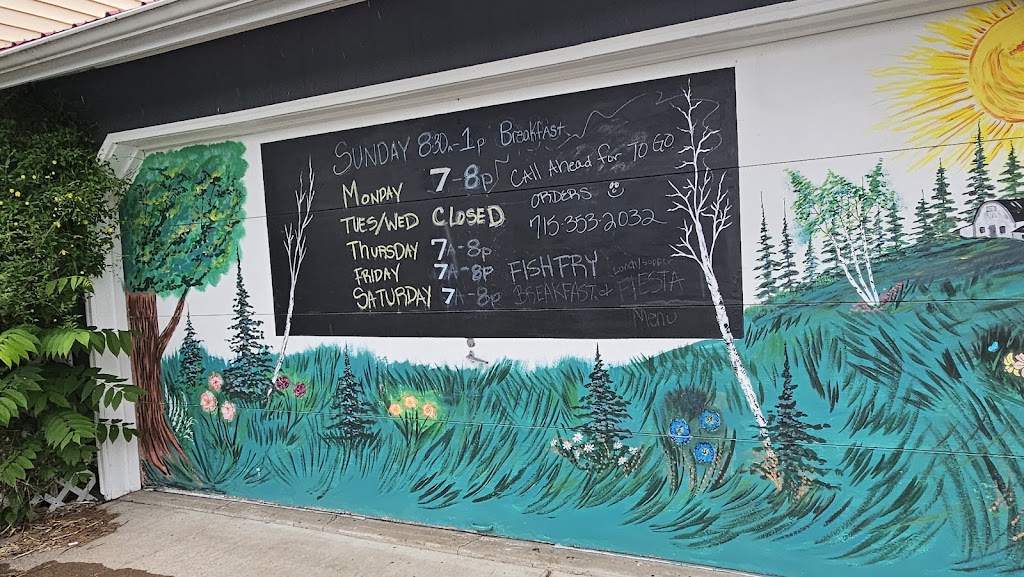 SUNDAY 8:30A-1p Breakfast
MONDAY 7-8p
TUES/WED CLOSED
THURSDAY 7A-8p
FRIDAY 7A-8p
SATURDAY 7A-8p
CALL AHEAD for TO GO
ORDERS ☺
715-353-2032
FISH FRY
Lunch/Supper
BREAKFAST & FIESTA
Menu